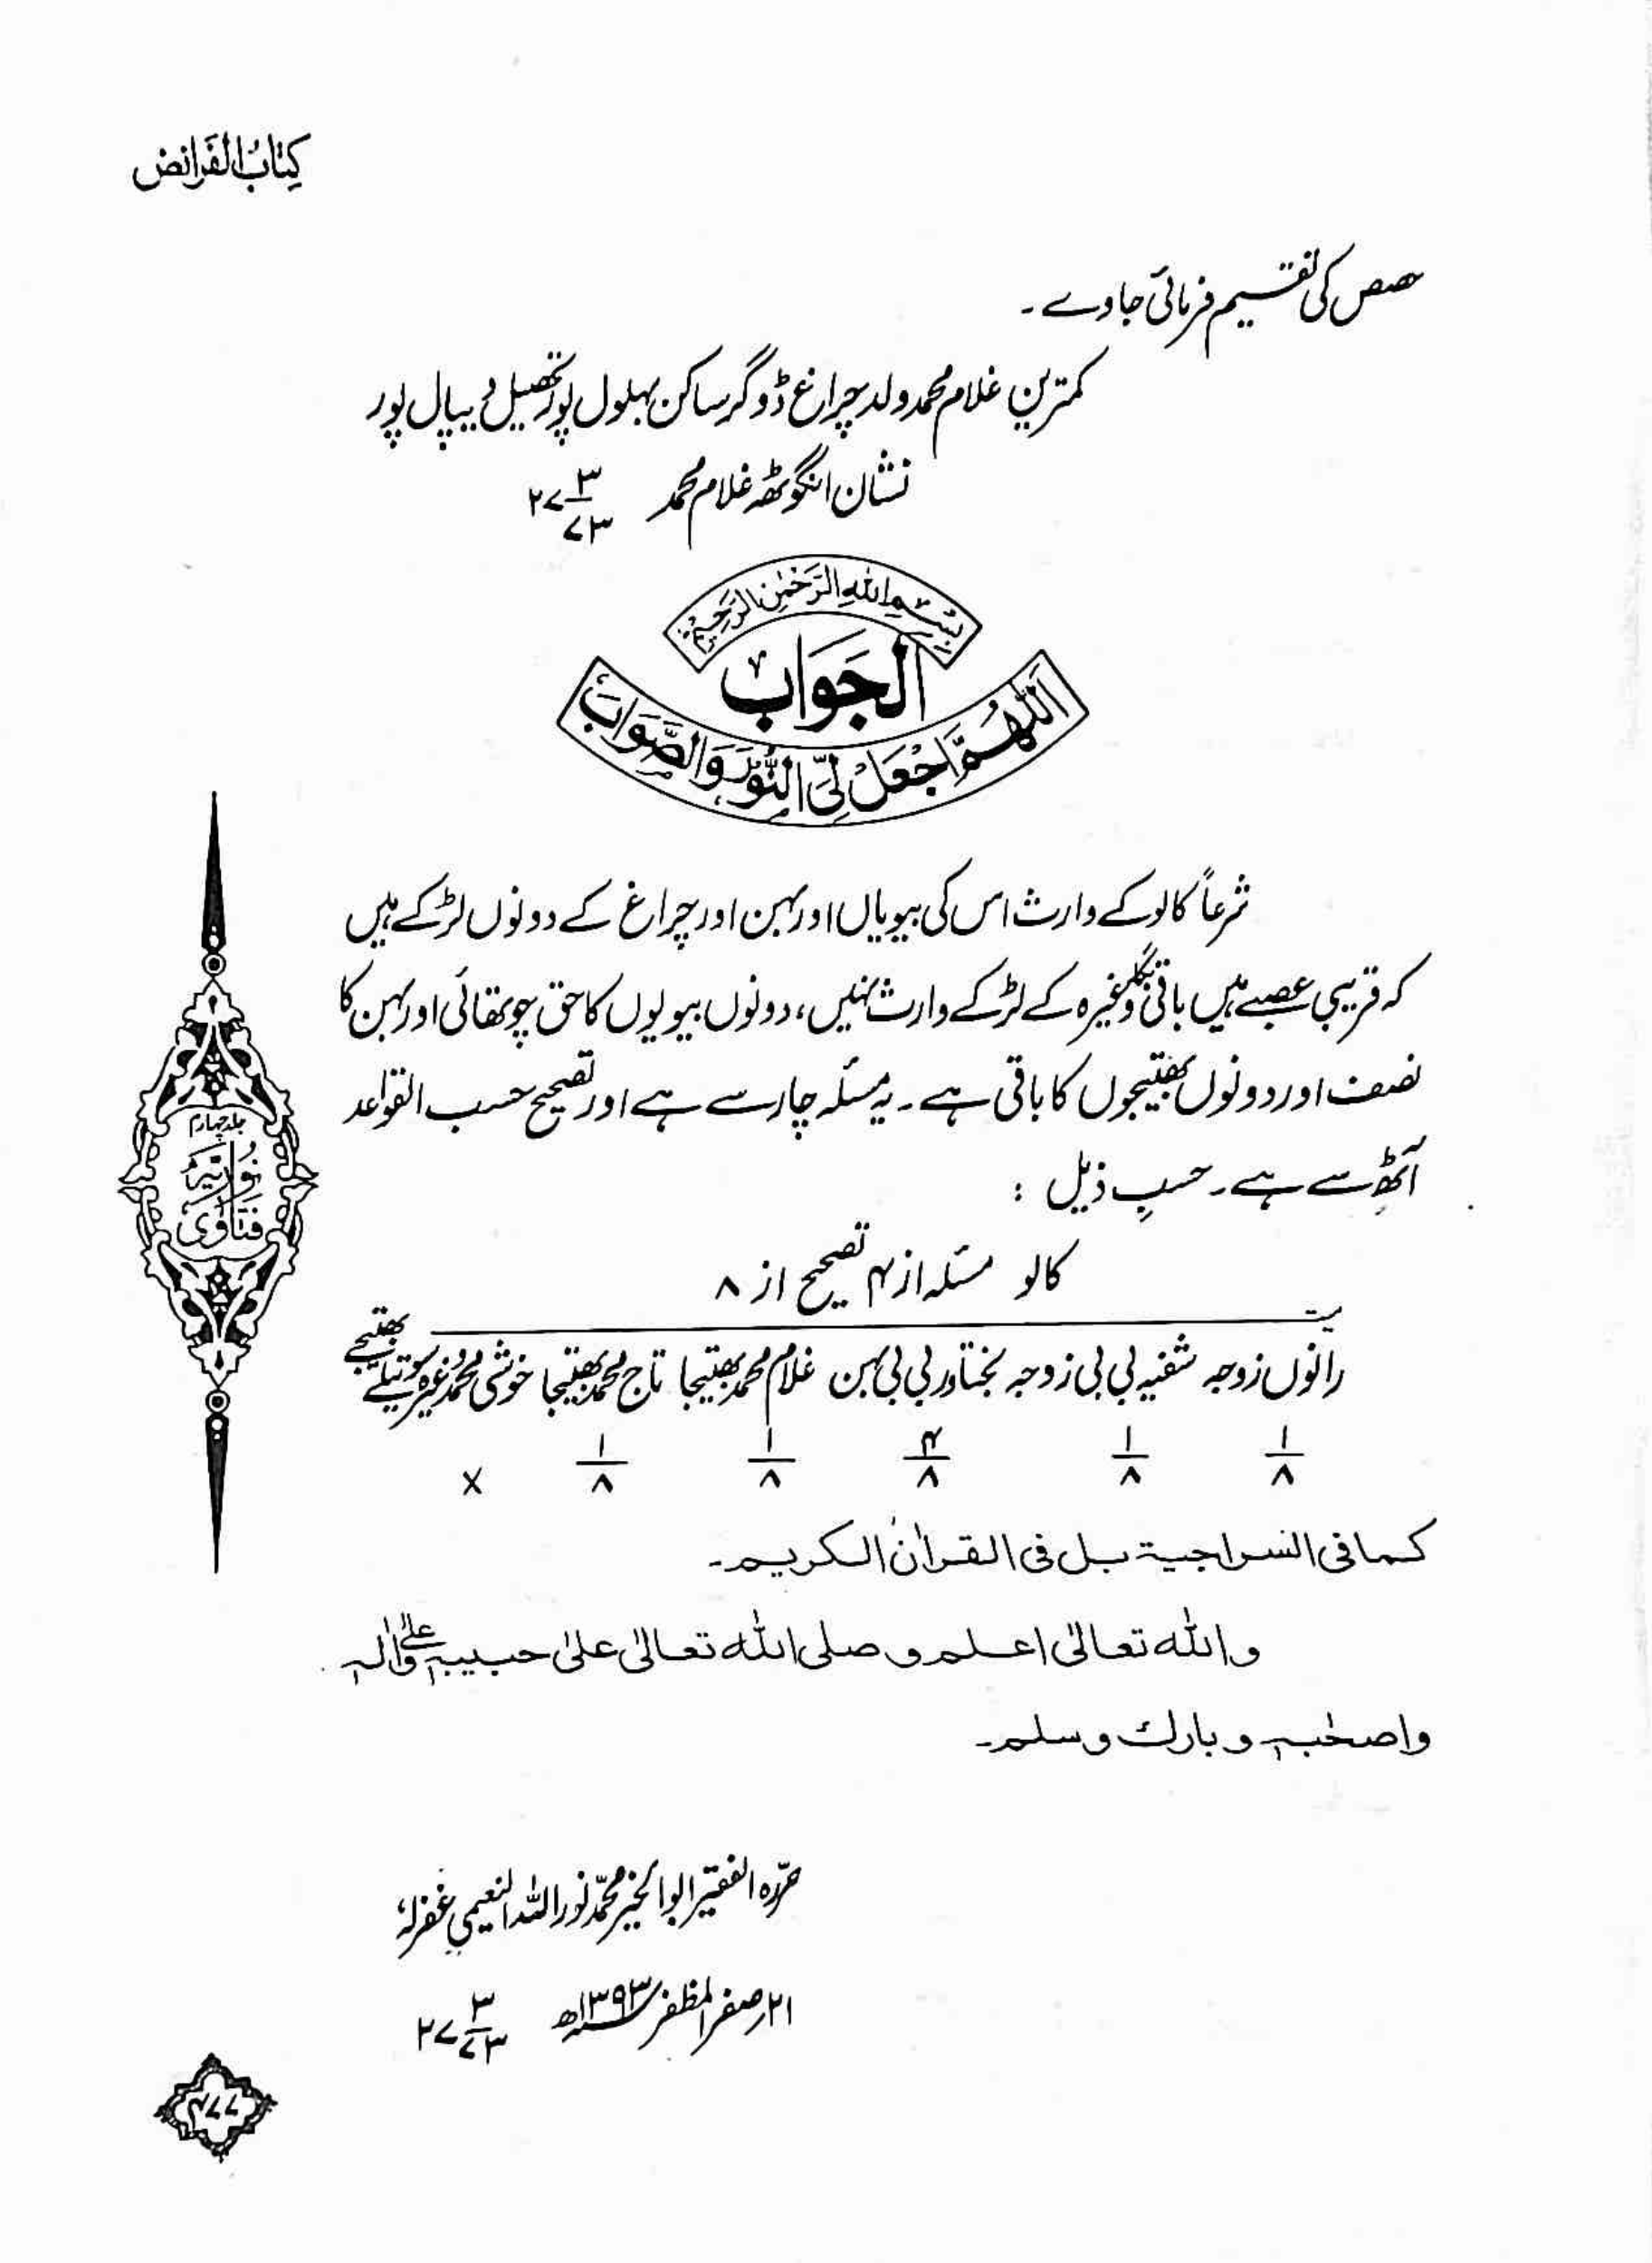 کتاب الفرائض
حصص کی تقسیم فرمائی جاوے۔
کمترین غلام محمد ولد چراغ ڈوگر ساکن بہلول پور تحصیل دیپال پور
نشان انگوٹھہ غلام محمد ۲۷/۳/۷۳
بِسْمِ اللهِ الرَّحْمٰنِ الرَّحِيْمِ
اَلْجَوَابُ
اَللّٰهُمَّ اجْعَلْ لِيَ النُّوْرَ وَالصَّوَابَ
شرعاً کالو کے وارث اس کی بیویاں اور بہن اور چراغ کے دونوں لڑکے ہیں
کہ قریبی عصبے ہیں باقی وغیرہ کے لڑکے وارث نہیں، دونوں بیویوں کا حق چوتھائی اور بہن کا
نصف اور دونوں بھتیجوں کا باقی ہے۔ یہ مسئلہ چار سے ہے اور تصحیح حسب القواعد
آٹھ سے ہے۔ حسبِ ذیل :
کالو مسئلہ از ۴ تصحیح از ۸
رانوں زوجہ شفیہ بی بی زوجہ بختاور بی بی بہن غلام محمد بھتیجا تاج محمد بھتیجا خوشی محمد وغیرہ سوتیلے بھتیجے
۱/۸ ۱/۸ ۴/۸ ۱/۸ ۱/۸ ×
کما فی السراجیۃ بل فی القراٰن الکریم۔
واللہ تعالیٰ اعلم وصلی اللہ تعالیٰ علیٰ حبیبہٖ وعلیٰ اٰلہٖ
واصحٰبہٖ وبارک وسلم۔
حررہ الفقیر ابوالخیر محمد نور اللہ النعیمی غفرلہٗ
۲۱؍ صفر المظفر ۱۳۹۳ھ ۲۷/۳/۷۳
جلد چہارم
نوریہ
فتاویٰ
۴۷۷